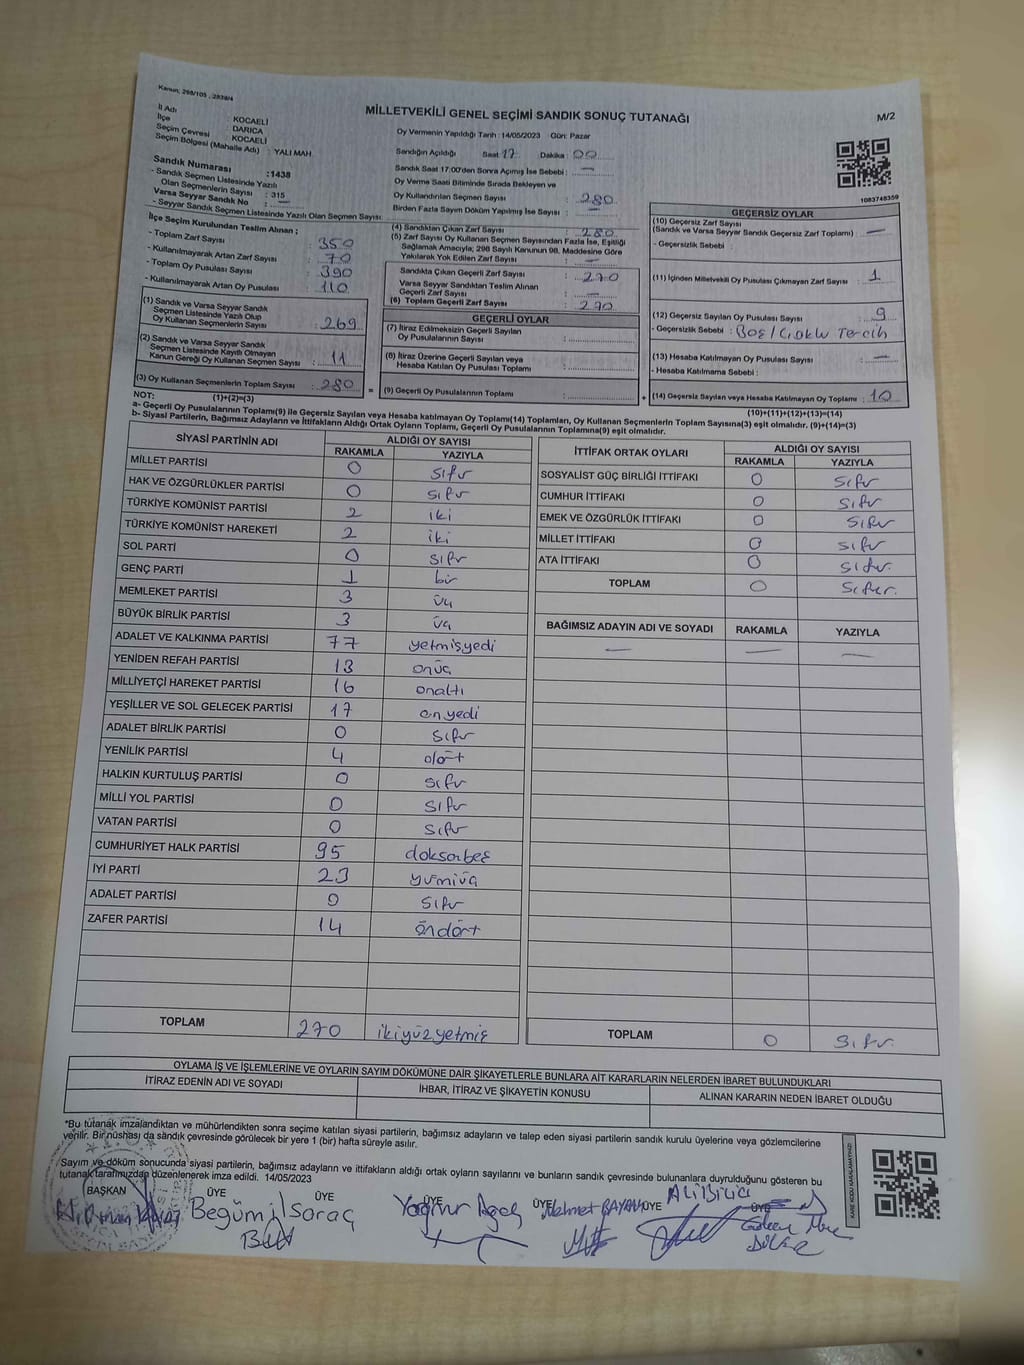 Kanun, 298/105 , 2839/4
MİLLETVEKİLİ GENEL SEÇİMİ SANDIK SONUÇ TUTANAĞI
M/2
İl Adı KOCAELİ
İlçe DARICA
Seçim Çevresi KOCAELİ
Seçim Bölgesi (Mahalle Adı) : YALI MAH.
Oy Vermenin Yapıldığı Tarih : 14/05/2023 Gün: Pazar
Sandığın Açıldığı Saat : 17 Dakika : 00
Sandık Saat 17:00'den Sonra Açmış İse Sebebi : —
Oy Verme Saati Bitiminde Sırada Bekleyen ve
Oy Kullandırılan Seçmen Sayısı : 280
Birden Fazla Sayım Döküm Yapılmış İse Sayısı : —
1083748359
Sandık Numarası :1438
- Sandık Seçmen Listesinde Yazılı
Olan Seçmenlerin Sayısı : 315
Varsa Seyyar Sandık No : —
- Seyyar Sandık Seçmen Listesinde Yazılı Olan Seçmen Sayısı
İlçe Seçim Kurulundan Teslim Alınan ;
- Toplam Zarf Sayısı : 350
- Kullanılmayarak Artan Zarf Sayısı : 70
- Toplam Oy Pusulası Sayısı : 390
- Kullanılmayarak Artan Oy Pusulası : 110
(1) Sandık ve Varsa Seyyar Sandık
Seçmen Listesinde Yazılı Olup
Oy Kullanan Seçmenlerin Sayısı : 269
(2) Sandık ve Varsa Seyyar Sandık
Seçmen Listesinde Kayıtlı Olmayan
Kanun Gereği Oy Kullanan Seçmen Sayısı : 11
(3) Oy Kullanan Seçmenlerin Toplam Sayısı : 280
(1)+(2)=(3)
(4) Sandıktan Çıkan Zarf Sayısı : 280
(5) Zarf Sayısı Oy Kullanan Seçmen Sayısından Fazla İse, Eşitliği
Sağlamak Amacıyla; 298 Sayılı Kanunun 98. Maddesine Göre
Yakılarak Yok Edilen Zarf Sayısı : —
Sandıkta Çıkan Geçerli Zarf Sayısı : 270
Varsa Seyyar Sandıktan Teslim Alınan
Geçerli Zarf Sayısı : —
(6) Toplam Geçerli Zarf Sayısı : 270
GEÇERLİ OYLAR
(7) İtiraz Edilmeksizin Geçerli Sayılan
Oy Pusulalarının Sayısı :
(8) İtiraz Üzerine Geçerli Sayılan veya
Hesaba Katılan Oy Pusulası Toplamı :
= (9) Geçerli Oy Pusulalarının Toplamı :
GEÇERSİZ OYLAR
(10) Geçersiz Zarf Sayısı
(Sandık ve Varsa Seyyar Sandık Geçersiz Zarf Toplamı) : —
- Geçersizlik Sebebi :
(11) İçinden Milletvekili Oy Pusulası Çıkmayan Zarf Sayısı : 1
(12) Geçersiz Sayılan Oy Pusulası Sayısı : 9
- Geçersizlik Sebebi : Boş/Çoklu Tercih
(13) Hesaba Katılmayan Oy Pusulası Sayısı : —
- Hesaba Katılmama Sebebi :
+ (14) Geçersiz Sayılan veya Hesaba Katılmayan Oy Toplamı : 10
(10)+(11)+(12)+(13)=(14)
NOT:
a- Geçerli Oy Pusulalarının Toplamı(9) ile Geçersiz Sayılan veya Hesaba katılmayan Oy Toplamı(14) Toplamları, Oy Kullanan Seçmenlerin Toplam Sayısına(3) eşit olmalıdır. (9)+(14)=(3)
b- Siyasi Partilerin, Bağımsız Adayların ve İttifakların Aldığı Ortak Oyların Toplamı, Geçerli Oy Pusulalarının Toplamına(9) eşit olmalıdır.
SİYASİ PARTİNİN ADI ALDIĞI OY SAYISI
RAKAMLA YAZIYLA
MİLLET PARTİSİ 0 sıfır
HAK VE ÖZGÜRLÜKLER PARTİSİ 0 sıfır
TÜRKİYE KOMÜNİST PARTİSİ 2 iki
TÜRKİYE KOMÜNİST HAREKETİ 2 iki
SOL PARTİ 0 sıfır
GENÇ PARTİ 1 bir
MEMLEKET PARTİSİ 3 üç
BÜYÜK BİRLİK PARTİSİ 3 üç
ADALET VE KALKINMA PARTİSİ 77 yetmişyedi
YENİDEN REFAH PARTİSİ 13 onüç
MİLLİYETÇİ HAREKET PARTİSİ 16 onaltı
YEŞİLLER VE SOL GELECEK PARTİSİ 17 onyedi
ADALET BİRLİK PARTİSİ 0 sıfır
YENİLİK PARTİSİ 4 dört
HALKIN KURTULUŞ PARTİSİ 0 sıfır
MİLLİ YOL PARTİSİ 0 sıfır
VATAN PARTİSİ 0 sıfır
CUMHURİYET HALK PARTİSİ 95 doksanbeş
İYİ PARTİ 23 yirmiüç
ADALET PARTİSİ 0 sıfır
ZAFER PARTİSİ 14 öndört
TOPLAM 270 ikiyüzyetmiş
İTTİFAK ORTAK OYLARI ALDIĞI OY SAYISI
RAKAMLA YAZIYLA
SOSYALİST GÜÇ BİRLİĞİ İTTİFAKI 0 sıfır
CUMHUR İTTİFAKI 0 sıfır
EMEK VE ÖZGÜRLÜK İTTİFAKI 0 sıfır
MİLLET İTTİFAKI 0 sıfır
ATA İTTİFAKI 0 sıfır
TOPLAM 0 sıfır
BAĞIMSIZ ADAYIN ADI VE SOYADI RAKAMLA YAZIYLA
— — —
TOPLAM 0 sıfır
OYLAMA İŞ VE İŞLEMLERİNE VE OYLARIN SAYIM DÖKÜMÜNE DAİR ŞİKAYETLERLE BUNLARA AİT KARARLARIN NELERDEN İBARET BULUNDUKLARI
İTİRAZ EDENİN ADI VE SOYADI İHBAR, İTİRAZ VE ŞİKAYETİN KONUSU ALINAN KARARIN NEDEN İBARET OLDUĞU
*Bu tutanak imzalandıktan ve mühürlendikten sonra seçime katılan siyasi partilerin, bağımsız adayların ve talep eden siyasi partilerin sandık kurulu üyelerine veya gözlemcilerine
verilir. Bir nüshası da sandık çevresinde görülecek bir yere 1 (bir) hafta süreyle asılır.
Sayım ve döküm sonucunda siyasi partilerin, bağımsız adayların ve ittifakların aldığı ortak oyların sayılarını ve bunların sandık çevresinde bulunanlara duyrulduğunu gösteren bu
tutanak tarafımızdan düzenlenerek imza edildi. 14/05/2023
BAŞKAN ÜYE ÜYE ÜYE ÜYE ÜYE ÜYE
Begüm Saraç
Yağmur
Mehmet BAYAM